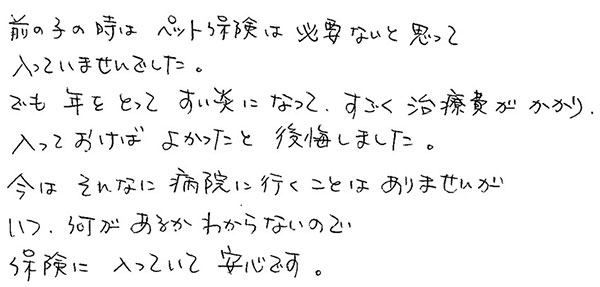 前の子の時は ペット保険は 必要ないと思って
入っていませんでした。
でも 年をとって すい炎になって、すごく 治療費が かかり、
入って おけば よかったと 後悔しました。
今は そんなに 病院に行くことは ありませんが
いつ、何が あるか わからないので
保険に 入っていて 安心です。